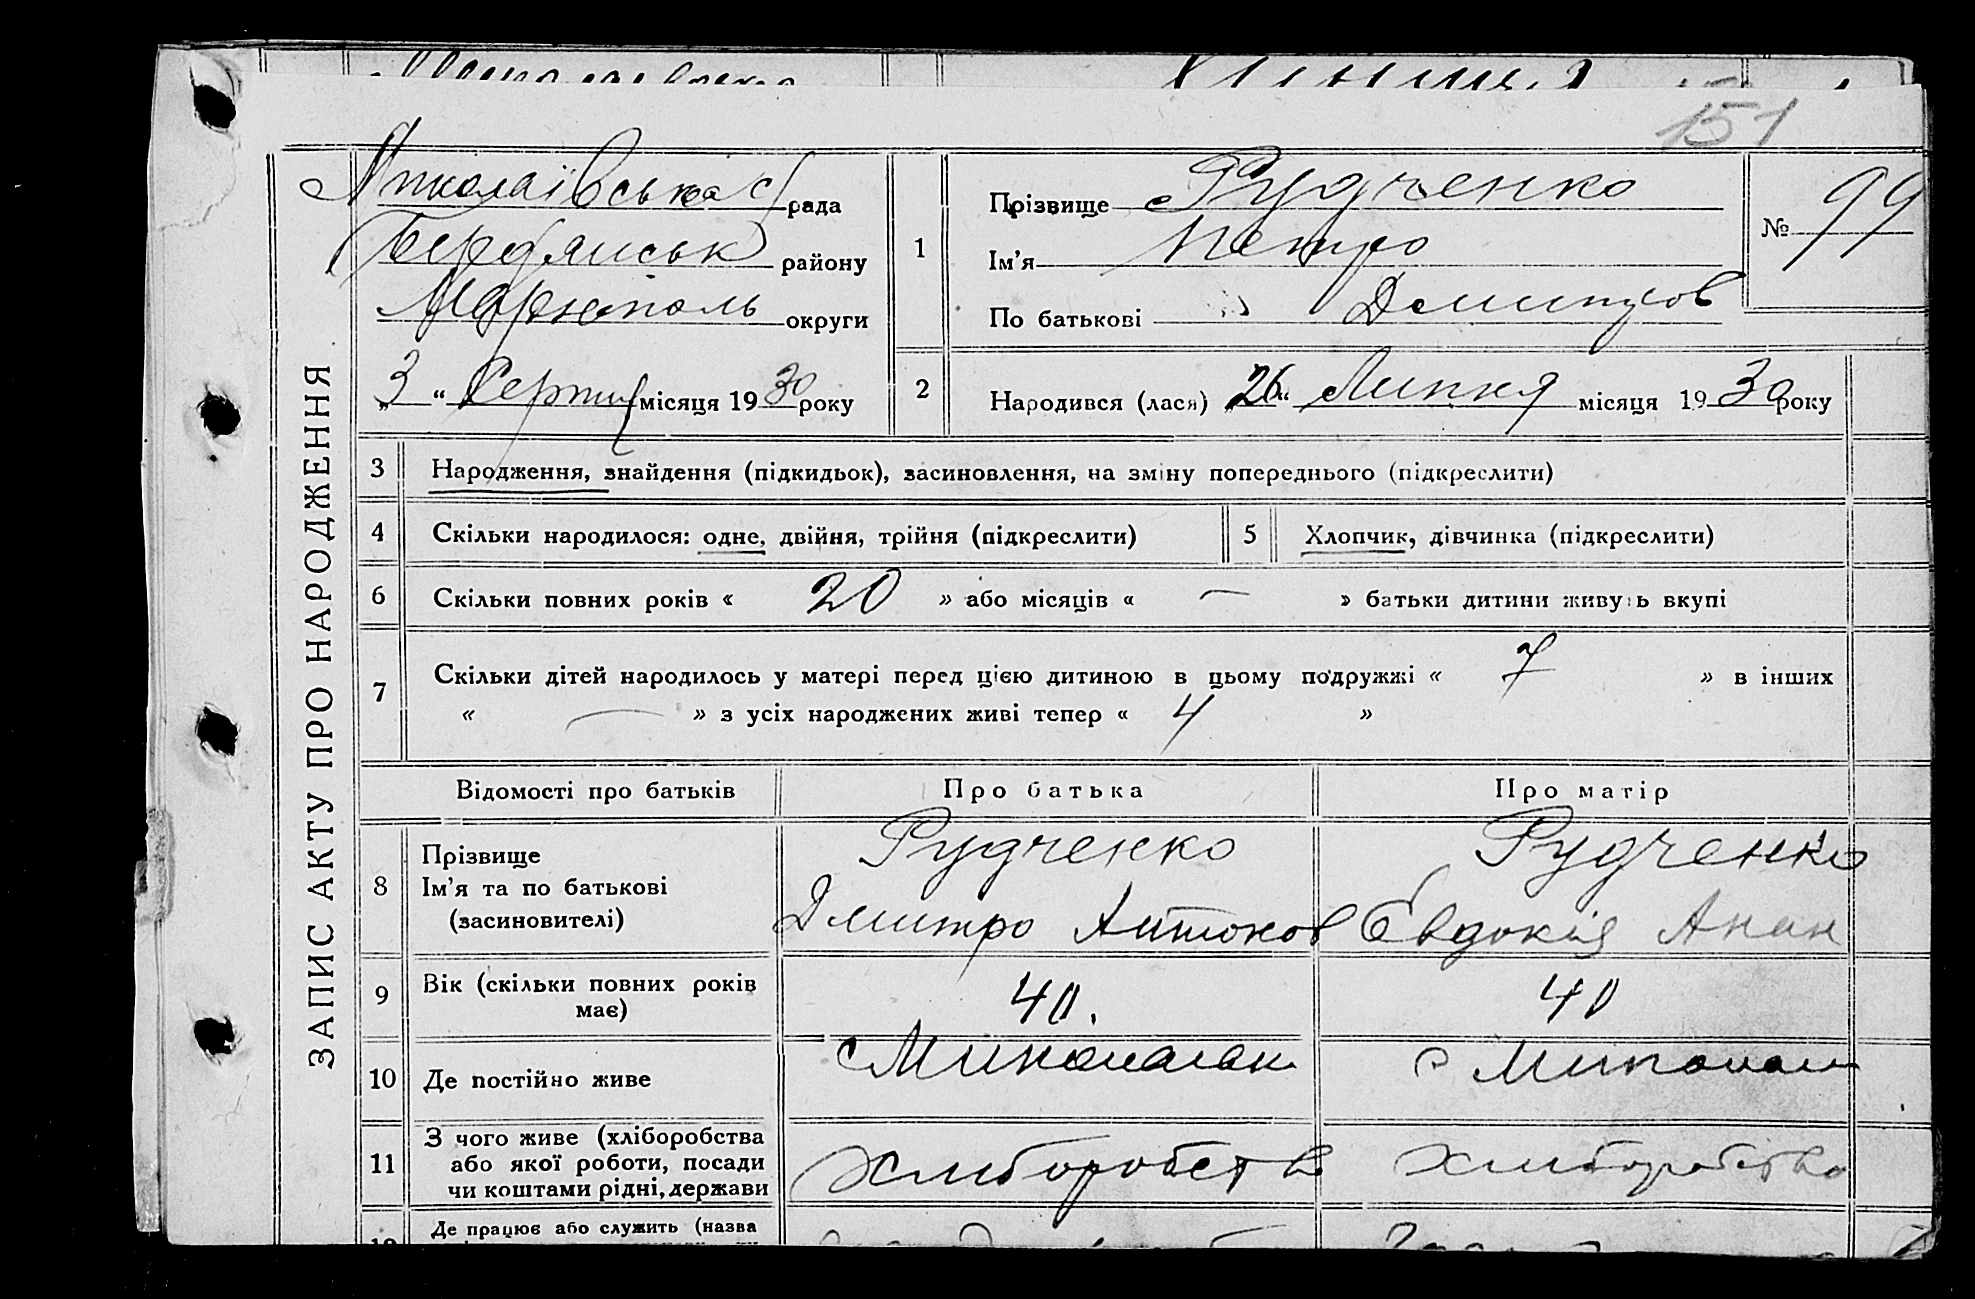 151
ЗАПИС АКТУ ПРО НАРОДЖЕННЯ
Миколаївська с/рада
Бердянськ району
Маріюполь округи
„3“ Серпня місяця 1930 року
1
Прізвище Рудченко
Ім'я Петро
По батькові Дмитров
№ 99
2
Народився (лася) „26“ Липня місяця 1930 року
3 Народження, знайдення (підкидьок), засиновлення, на зміну попереднього (підкреслити)
4 Скільки народилося: одне, двійня, трійня (підкреслити)
5 Хлопчик, дівчинка (підкреслити)
6 Скільки повних років « 20 » або місяців « — » батьки дитини живуть вкупі
7 Скільки дітей народилось у матері перед цією дитиною в цьому подружжі « 7 » в інших
« — » з усіх народжених живі тепер « 4 »
Відомості про батьків Про батька Про матір
8 Прізвище Рудченко Рудченко
Ім'я та по батькові
(засиновителі) Дмитро Антонов Евдокія Анан
9 Вік (скільки повних років має) 40. 40
10 Де постійно живе с Миколаівк с Миколаи
11 З чого живе (хліборобства
або якої роботи, посади
чи коштами рідні, держави Хлиборобств Хлиборобство
Де працює або служить (назва